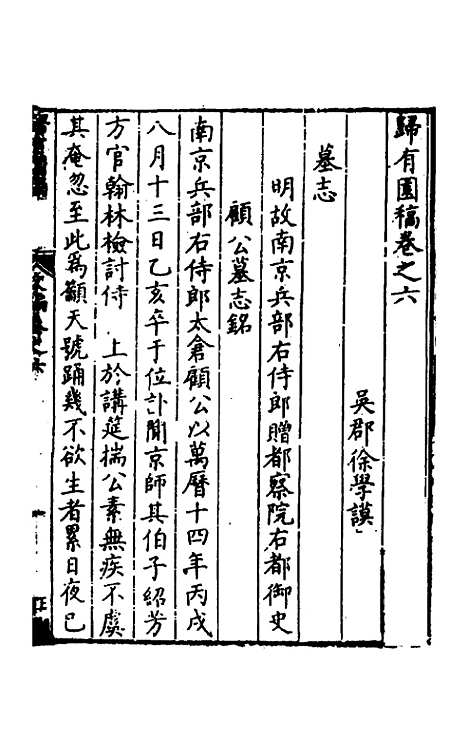 歸有園稿卷之六
吳郡徐學謨
墓志
明故南京兵部右侍郎贈都察院右都御史
顧公墓志銘
南京兵部右侍郎太倉顧公以萬曆十四年丙戌
八月十三日乙亥卒于位訃聞京師其伯子紹芳
方官翰林檢討侍 上於講筵揣公素無疾不虞
其奄忽至此為籲天號踊幾不欲生者累日夜已